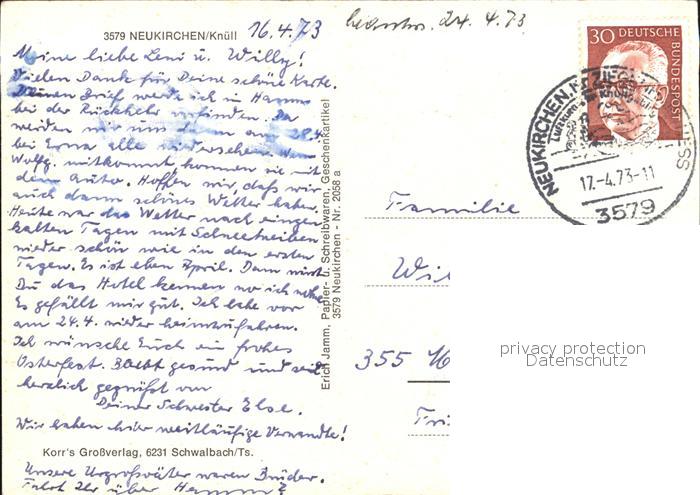 3579 NEUKIRCHEN/Knüll 16.4.73
beantw. 24. 4. 73
Meine liebe Leni u. Willy!
Vielen Dank für Deine schöne Karte.
Deinen Brief werde ich in Hamm
bei der Rückkehr vorfinden. Da
werden wir uns am 28.4.
bei Erna alle wiedersehen. Wenn
Wolfg. mitkommt, kommen sie mit
dem Auto. Hoffen wir, daß wir
auch dann schönes Wetter haben.
Heute war das Wetter nach einigen
kalten Tagen mit Schneetreiben
wieder schön wie in den ersten
Tagen. Es ist eben April. Dann wirst
Du das Hotel kennen wo ich
Es gefällt mir gut. Ich habe vor
am 24.4. wieder heimzufahren.
Ich wünsche Euch ein frohes
Osterfest. Bleibt gesund und seid
herzlich gegrüßt von
Deiner Schwester Else.
Wir haben hier weitläufige Verwandte!
Korr's Großverlag, 6231 Schwalbach/Ts.
Unsere Urgroßväter waren Brüder.
Fahrt Ihr über Hamm?
Erich Jamm, Papier- u. Schreibwaren, Geschenkartikel
3579 Neukirchen - Nr. 2058 a
30 DEUTSCHE BUNDESPOST
NEUKIRCHEN, Kr ZIEGENHAIN
17.-4.73-11
3579
Familie
355
privacy protection
Datenschutz